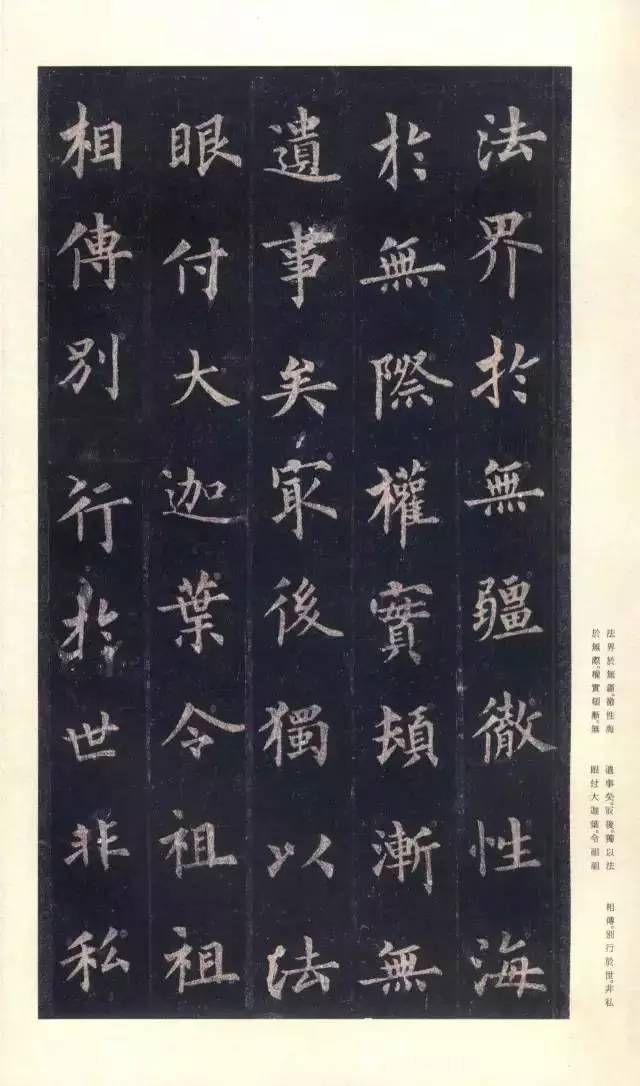 法界於無疆徹性海
於無際權實頓漸無
遺事矣㝡後獨以法
眼付大迦葉令祖祖
相傳別行於世非私
法界於無疆。徹性海
於無際。權實頓漸。無
遺事矣。㝡後。獨以法
眼付大迦葉。令祖祖
相傳。別行於世。非私